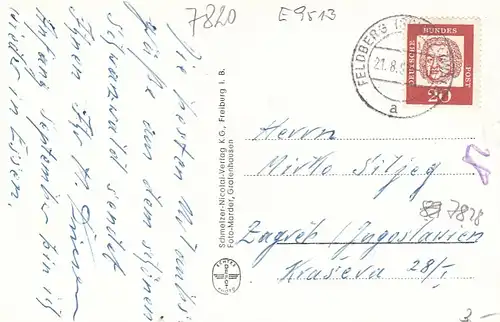 7820
E9513
Die besten Urlaubs-
grüße aus dem schönen
Schwarzwald sendet
Ihnen Ihr
Anfang September bin ich
wieder in Essen.
Schmelzer-Nicolai-Verlag K.G., Freiburg i. B.
Foto-Marder, Grafenhausen
ECHTES FOTO
FELDBERG (
21.8.
a
DEUTSCHE BUNDES POST
20
Herrn
Mirko Siljeg
7828
Zagreb / Jugoslavien
Kraševa 28/I
3.-